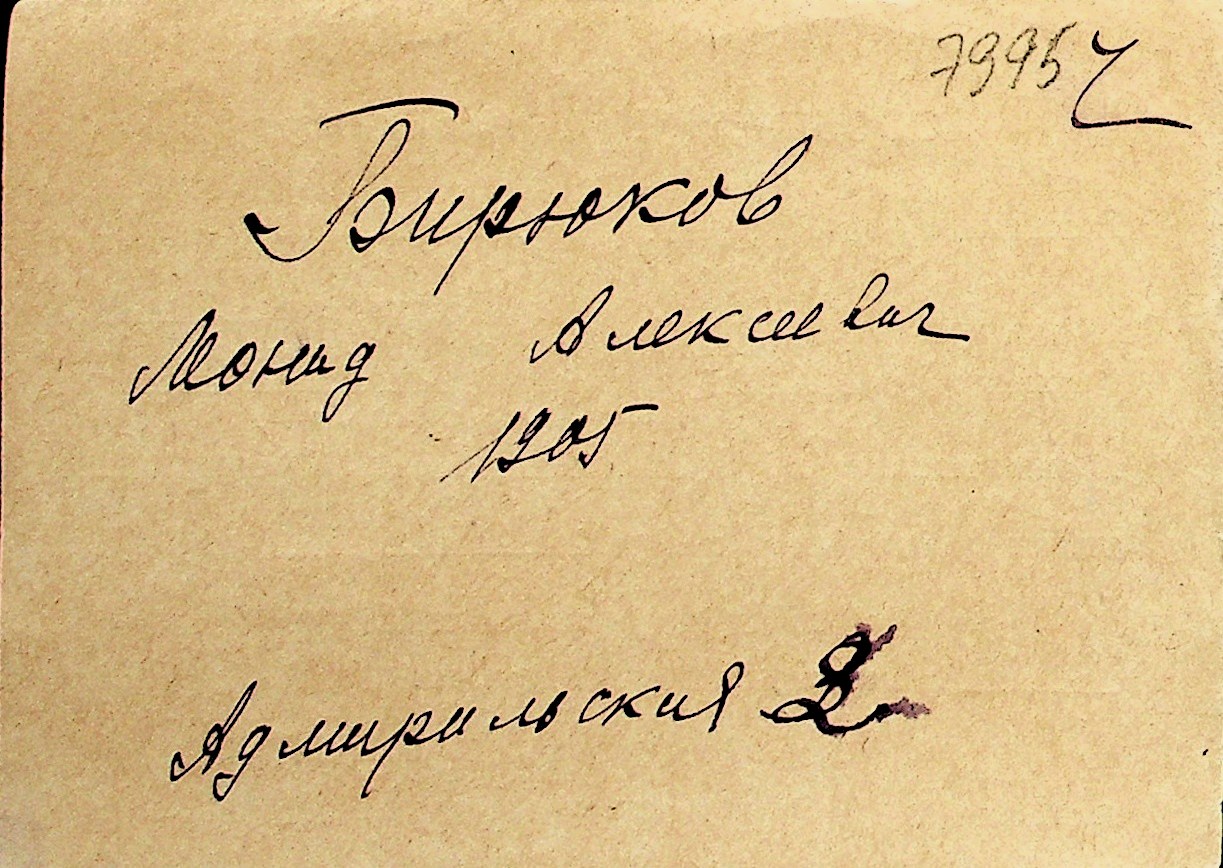 79957
Бирюков
Леонид Алексеевич
1905
Адмиральская 2